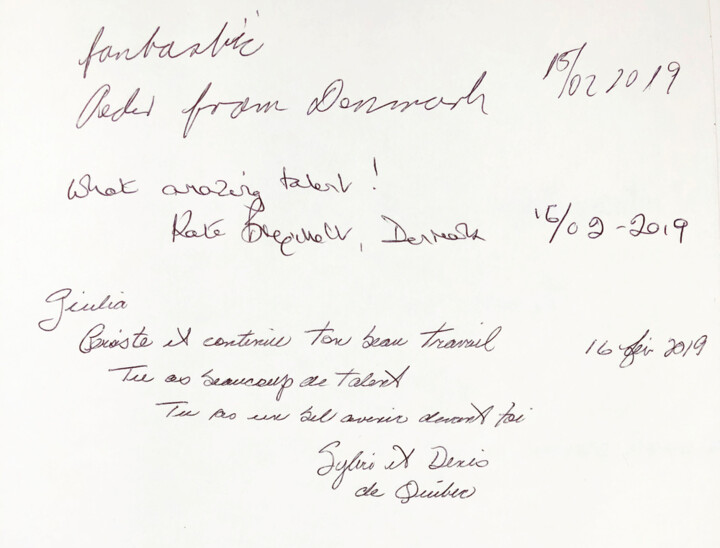 fantastic
Peder from Denmark 15/02 2019
What amazing talent!
Kate, Denmark 15/02-2019
Giulia
et continue ton beau travail 16 fév 2019
Tu as beaucoup de talent
Tu as un bel avenir devant toi
Sylvie et Denis
de Québec